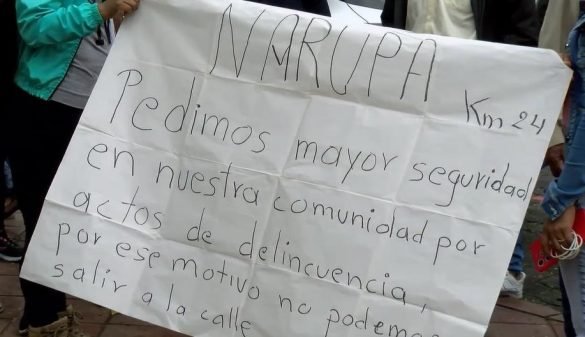 NARUPA
Km 24
Pedimos mayor seguridad
en nuestra comunidad por
actos de delincuencia,
por ese motivo no podemos
salir a la calle